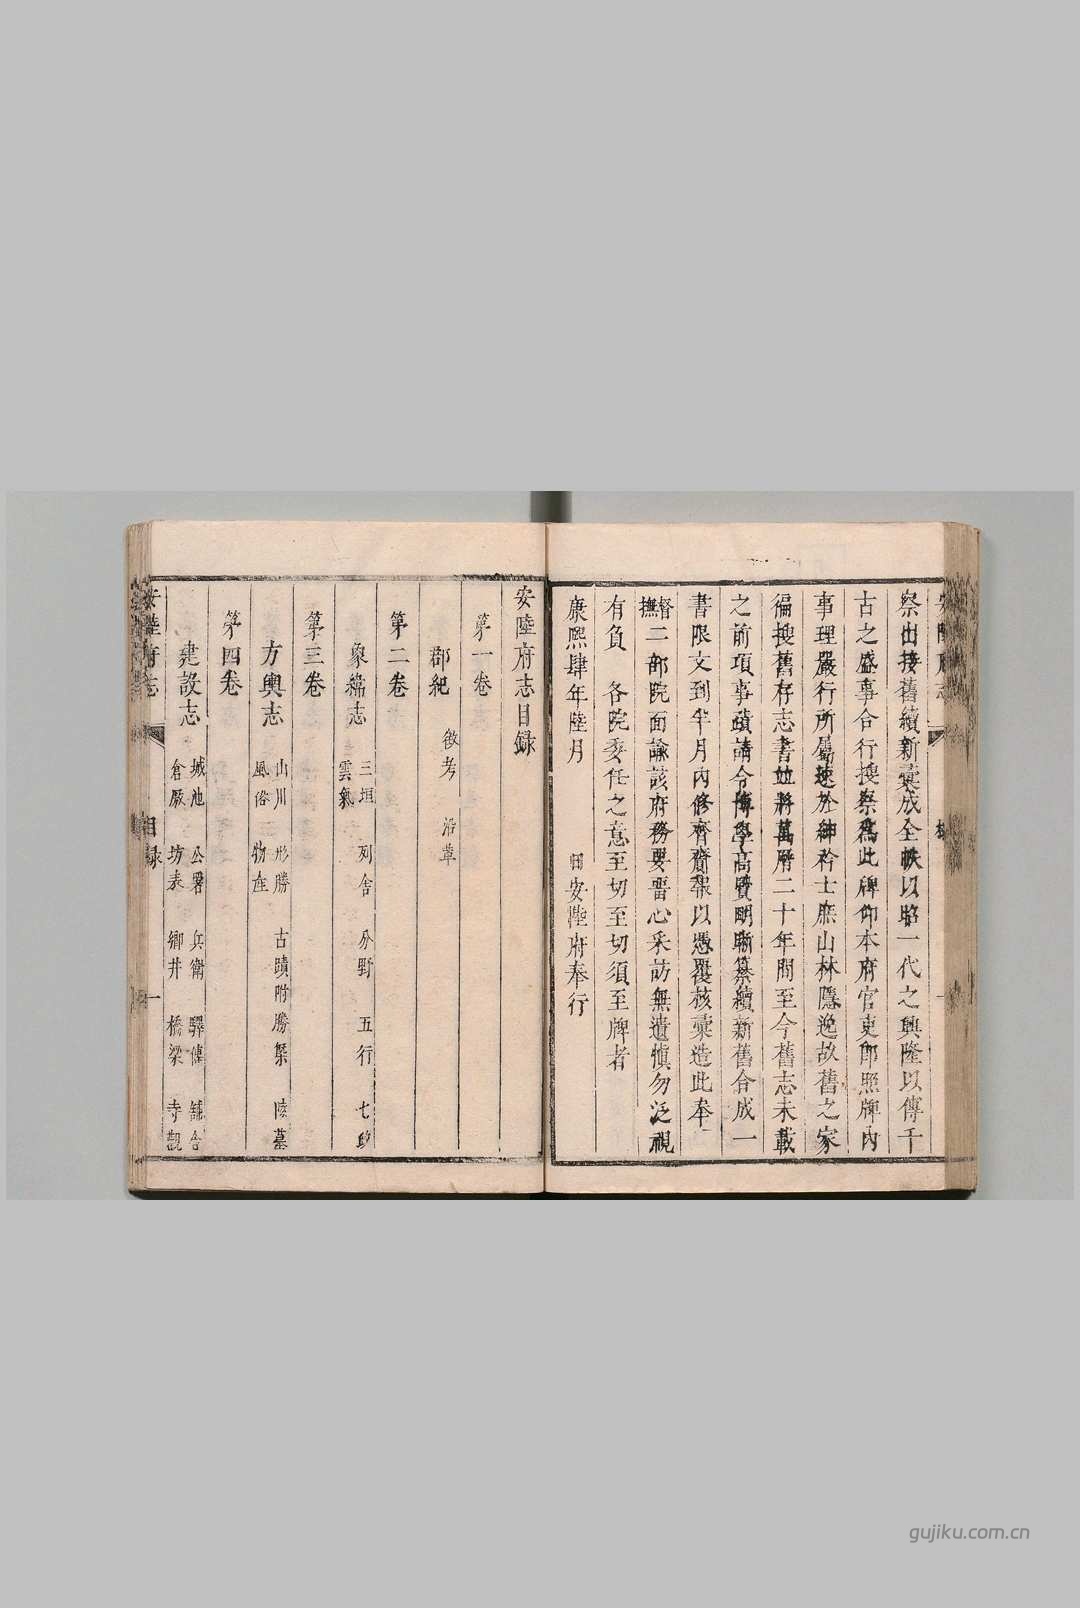 察出接舊續新彙成全帙以昭一代之興隆以傳千
古之盛事合行搜察爲此牌仰本府官吏即照牌內
事理嚴行所屬速於紳衿士庶山林隱逸故舊之家
徧搜舊存志書並將萬曆二十年間至今舊志未載
之前項事蹟請令博學高賢明晰纂續新舊合成一
書限文到半月內修齊齎報以憑覆核彙造此奉
督撫二部院面諭該府務要畱心采訪無遺慎勿泛視
有負　各院委任之意至切至切須至牌者
康熙肆年陸月　　　　　安陸府奉行
安陸府志目録
第一卷
郡紀　徵考　沿革
第二卷
象緯志　三垣　列舍　分野　五行　七政
雲氣
第三卷
方輿志　山川　形勝　古蹟附勝槩　陵墓
風俗　物產
第四卷
建設志　城池　公署　兵衛　驛傳　舖舍
倉廒　坊表　鄉井　橋梁　寺觀
安陸府志　目録　一
gujiku.com.cn